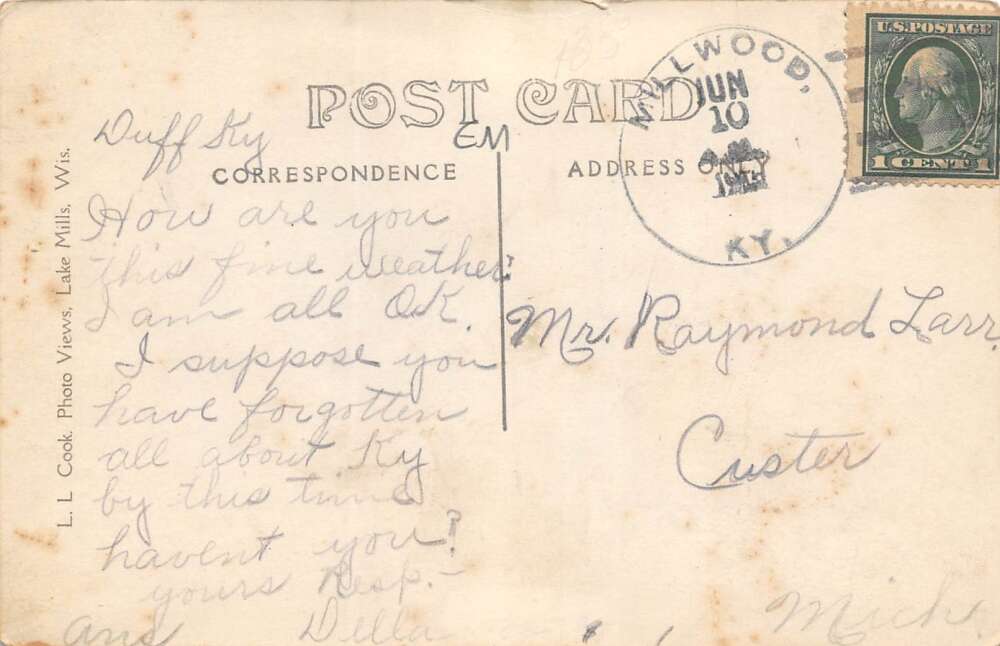 POST CARD
EM
CORRESPONDENCE
ADDRESS ONLY
MILLWOOD,
JUN
10
KY.
U.S. POSTAGE
1 CENT 1
L. L Cook. Photo Views, Lake Mills, Wis.
Duff Ky
How are you
this fine weather?
I am all O.K.
I suppose you
have forgotten
all about Ky
by this time
havent you?
yours Resp.-
Ans Della
Mr. Raymond Larr.
Custer
Mich